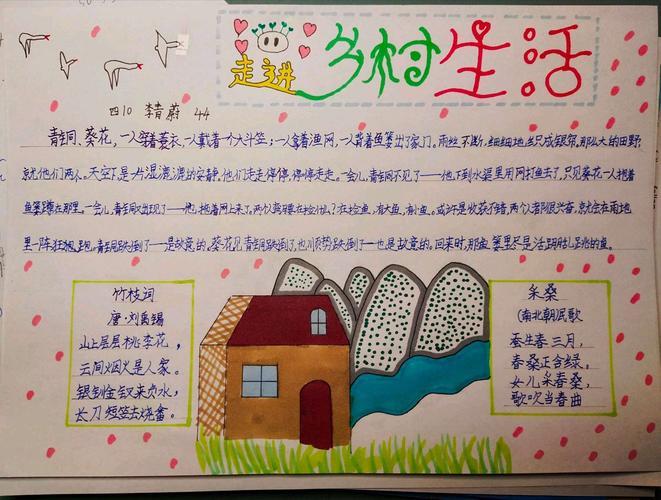 走进 乡村生活
四10 李青蔚 44
青铜、葵花,一人穿着蓑衣,一人戴着一个大斗笠;一人拿着渔网,一人背着鱼篓出了家门。雨丝不断,细细地丝只成银帘,那么大的田野,
就他们两人。天空下是一片湿漉漉的安静。他们走走停停,停停走走。一会儿,青铜不见了——他下到水渠里用网打鱼去了,只见葵花一人抱着
鱼篓蹲在那里。一会儿,青铜又出现了——他抱着网上来了。两个人弯腰在捡什么?在捡鱼,有大鱼,有小鱼。或许是收获不错,两个人都很兴奋,就会在雨地
里一阵狂跑。青铜跌倒了——是故意的。葵花见青铜跌倒了,也顺势跌倒了——也是故意的。回来时,那鱼篓里尽是活蹦乱跳的鱼。
竹枝词
唐·刘禹锡
山上层层桃李花,
云间烟火是人家。
银钏金钗来负水,
长刀短笠去烧畲。
采桑
(南北朝)民歌
蚕生春三月,
春桑正含绿,
女儿采春桑,
歌吹当春曲